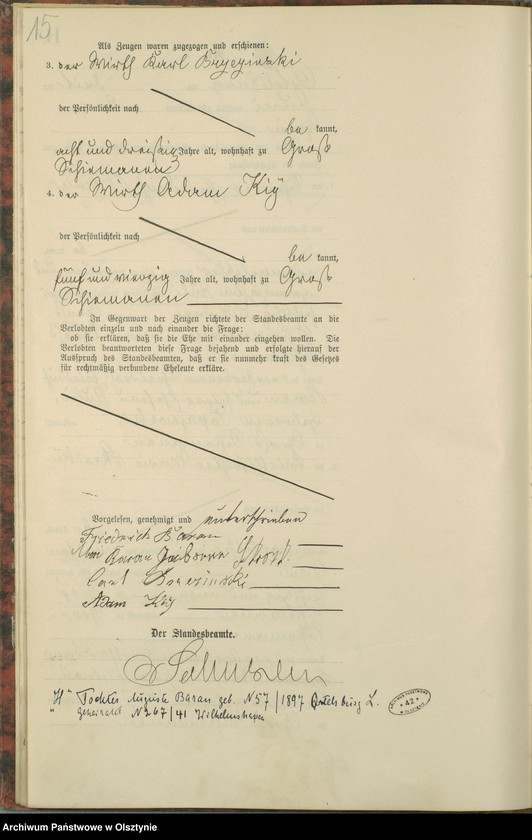 15
Als Zeugen waren zugezogen und erschienen:
3. der Wirth Karl Bryezinski
der Persönlichkeit nach
be kannt,
acht und dreißig Jahre alt, wohnhaft zu Groß
Schiemanen
4. der Wirth Adam Kiy
der Persönlichkeit nach
be kannt,
fünf und vierzig Jahre alt, wohnhaft zu Groß
Schiemanen
In Gegenwart der Zeugen richtete der Standesbeamte an die
Verlobten einzeln und nach einander die Frage:
ob sie erklären, daß sie die Ehe mit einander eingehen wollen. Die
Verlobten beantworteten diese Frage bejahend und erfolgte hierauf der
Ausspruch des Standesbeamten, daß er sie nunmehr kraft des Gesetzes
für rechtmäßig verbundene Eheleute erkläre.
Vorgelesen, genehmigt und unterschrieben
Friedrich Baran
Baran
Carl
Adam Kiy
Der Standesbeamte.
"H" Tochter Auguste Baran geb. N 57/1897 Ortelsburg L.
" geheiratet N 267/41 Wilhelmshaven
42
Archiwum Państwowe w Olsztynie